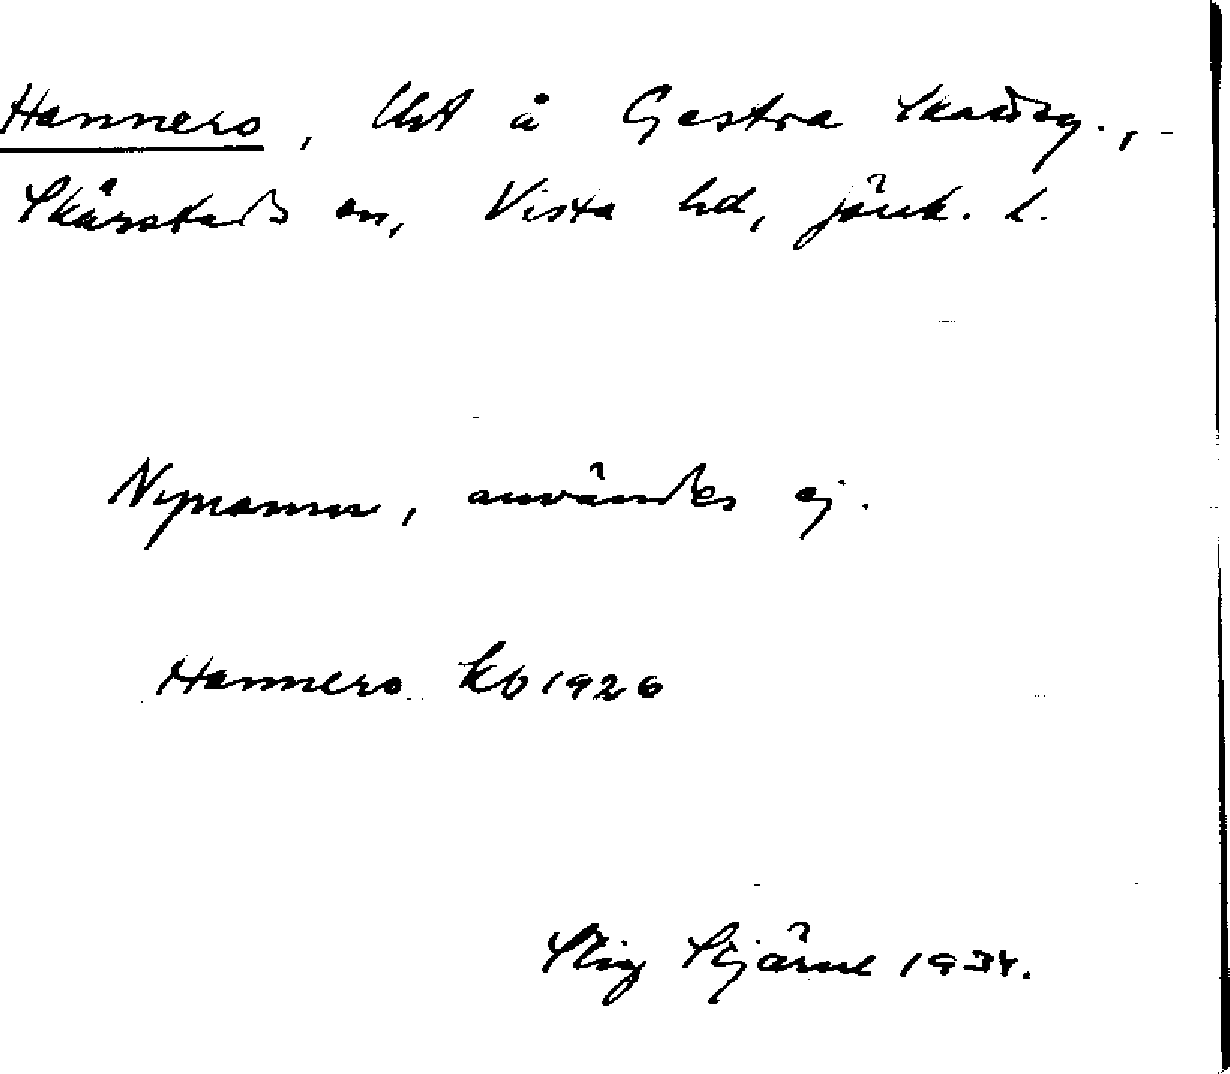 Hannero, lht å Gastra Skatteg.,
Skärstads sn, Vista hd, Jönk. l.
Nynamn, användes ej.
Hannero kb 1926
Stig Stjärne 1934.